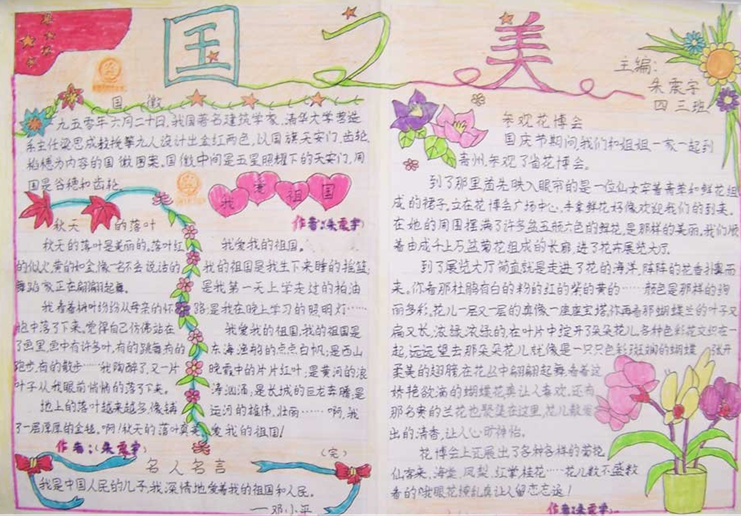 国之美
主编:
朱震宇
四三班
国徽
一九五零年六月二十日,我国著名建筑学家、清华大学营造
系主任梁思成教授等九人设计出金红两色,以国旗天安门、齿轮、
稻穗为内容的国徽图案。国徽中间是五星照耀下的天安门,周
围是谷穗和齿轮。
秋天的落叶
秋天的落叶是美丽的,落叶红
的似火,黄的如金像一名不会说话的
舞蹈家正在翩翩起舞。
我看着树叶纷纷从母亲的怀
抱中落下来,觉得自己仿佛站在
了画里,画中有许多叶,有的跳舞,有的
跑步,有的散步……我陶醉了,又一片
叶子从我眼前悄悄的落了下来。
地上的落叶越来越多,像铺
了一层厚厚的金毯。啊!秋天的落叶真美
作者:(朱震宇)
我爱祖国
作者:朱震宇
我爱我的祖国。
我的祖国是我生下来睡的摇篮;
是我第一天上学走过的柏油
路;是我在晚上学习的照明灯……
我爱我的祖国,我的祖国是
东海渔船的点点白帆;是西山
晚霞中的片片红叶,是黄河的浪
涛汹涌,是长城的巨龙奔腾;是
运河的雄伟、壮丽……啊,我
爱我的祖国!
(完)
名人名言
我是中国人民的儿子,我深情地爱着我的祖国和人民。
——邓小平
参观花博会
国庆节期间,我们和姐姐一家一起到
青州,参观了省花博会。
到了那里首先映入眼帘的是一位仙女穿着青菜和鲜花组
成的裙子,立在花博会广场中心,手拿鲜花好像欢迎我们的到来。
在她的周围摆满了许多盆五颜六色的鲜花,是那样的美丽。我们顺
着由成千上万盆菊花组成的长廊,进了花卉展览大厅。
到了展览大厅简直就是走进了花的海洋,阵阵的花香扑鼻而
来。你看那杜鹃有白的粉的红的紫的黄的……颜色是那样的绚
丽多彩,花儿一层又一层的真像一座座宝塔。你再看那蝴蝶兰的叶子又
扁又长,浓绿,浓绿的,在叶片中掟开了朵朵花儿,各种色彩花交织在一
起,远远望去那朵朵花儿就像是一只只色彩斑斓的蝴蝶,张开
柔美的翅膀,在花丛中翩翩起舞,看着这
娇艳欲滴的蝴蝶花真让人喜欢。还有
那名贵的兰花也聚集在这里,花儿散发
出的清香,让人心旷神怡。
花博会上还展出了各种各样的菊花、
仙客来、海棠、凤梨、红掌、桂花……花儿数不胜数
看的哦眼花撩乱真让人留恋忘返!
作者:朱震宇